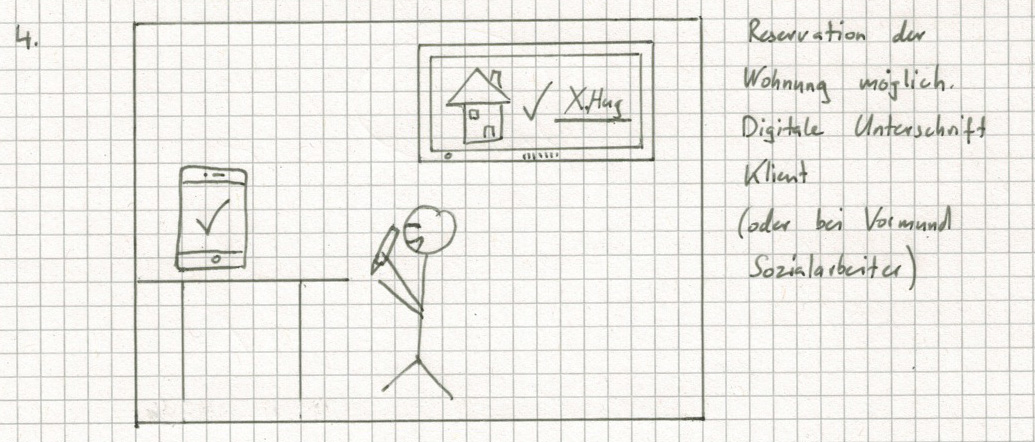 4.
X.Hug
Reservation der
Wohnung möglich.
Digitale Unterschrift
Klient
(oder bei Vormund
Sozialarbeiter)